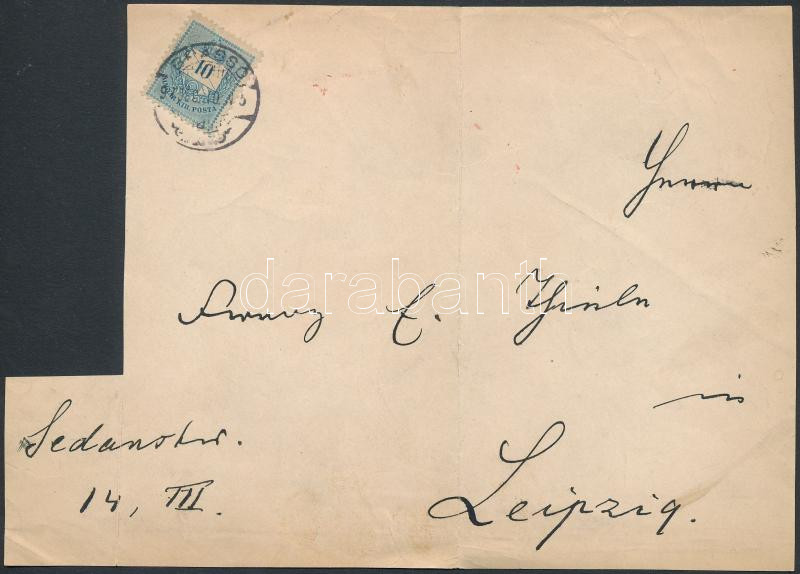 10
KIR. POSTA
BRASSÓ
Herrn
Franz E. Thiele
in
Leipzig.
Sedanstr.
14, III.
darabanth